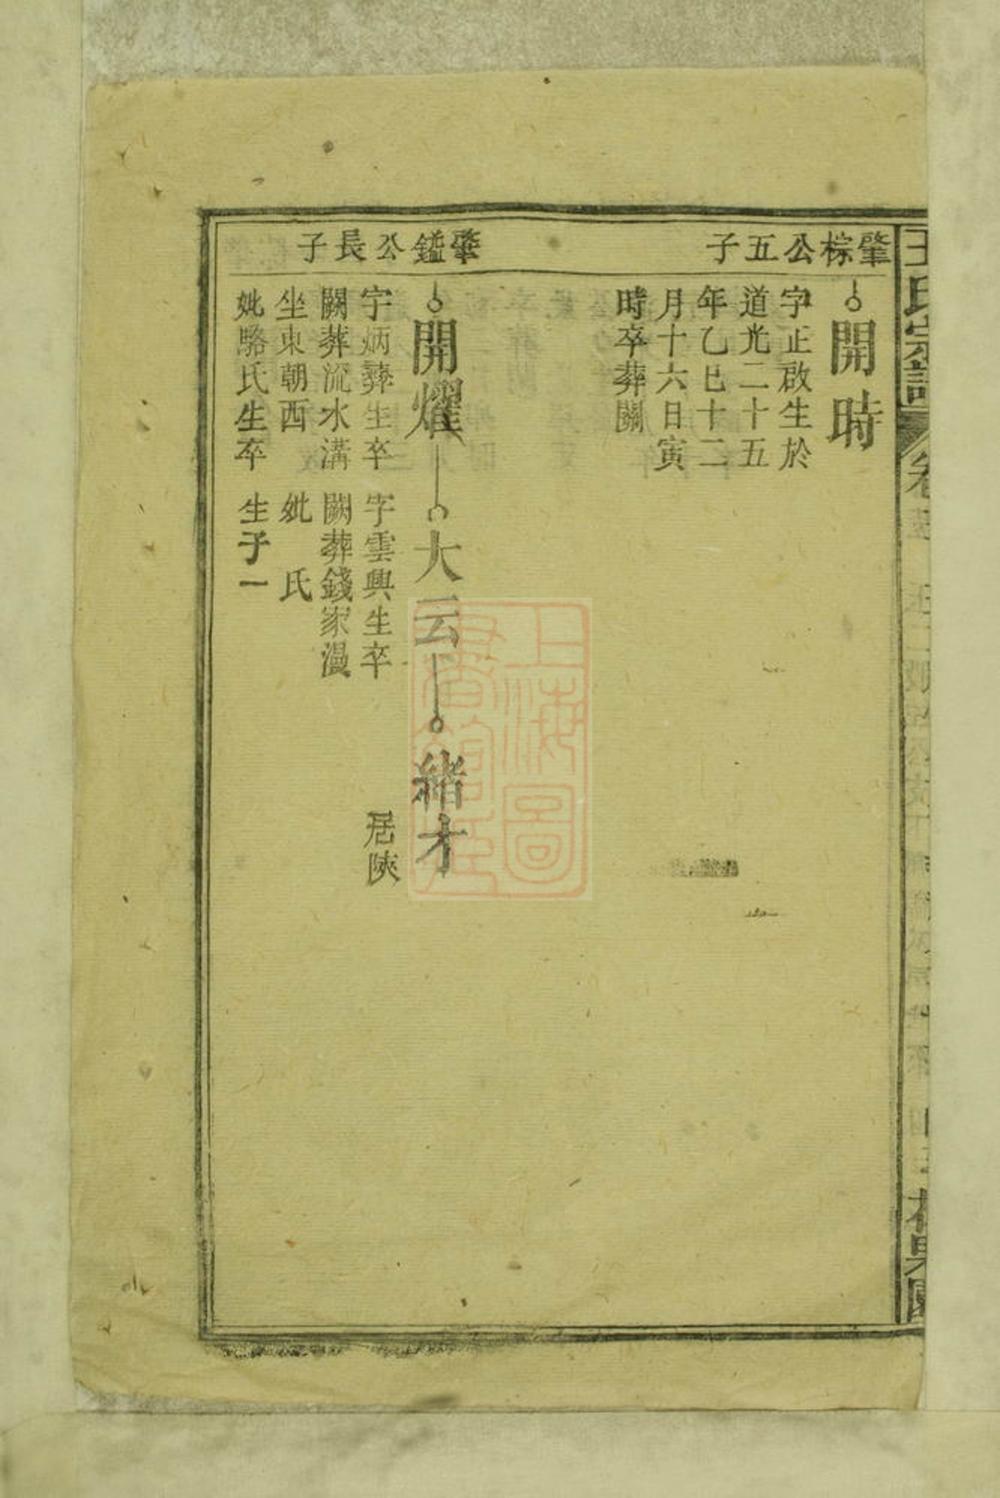 王氏宗譜
肇棕公五子
開時
字正啟生於
道光二十五
年乙巳十二
月十六日寅
時卒葬闕
肇鎰公長子
開燿
字炳彝生卒
闕葬流水溝
坐東朝西
妣駱氏生卒
大云
字雲興生卒
闕葬錢家漫
妣　氏
生子一
緒才
居陝
上海圖書館藏